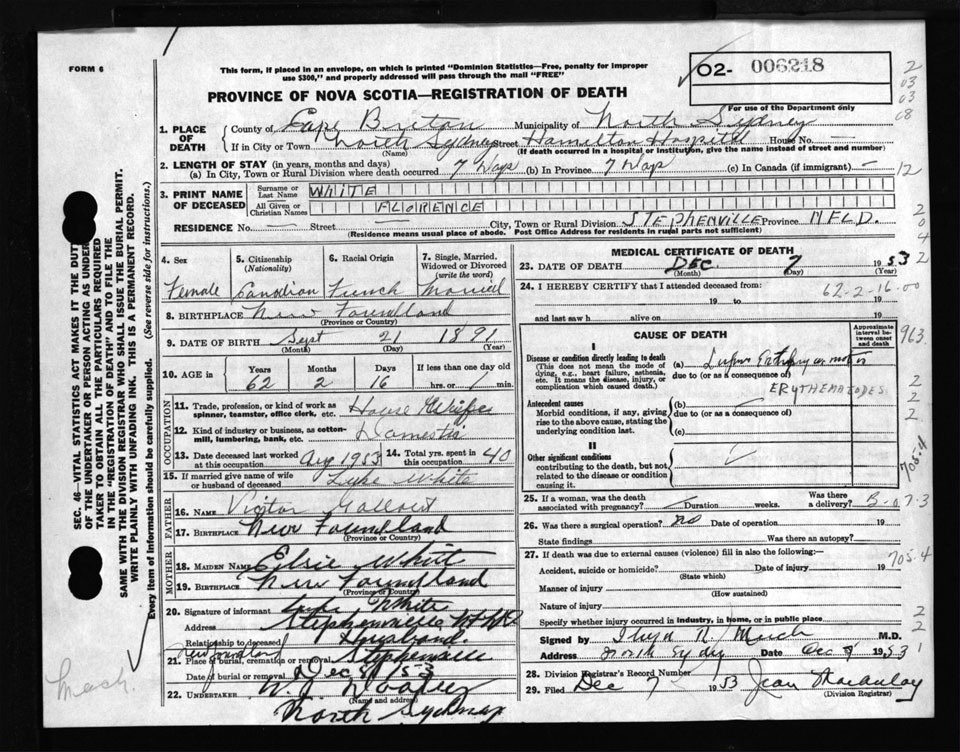 FORM 6
This form, if placed in an envelope, on which is printed "Dominion Statistics—Free, penalty for improper
use $300," and properly addressed will pass through the mail "FREE"
O2- 006218
For use of the Department only
PROVINCE OF NOVA SCOTIA—REGISTRATION OF DEATH
1. PLACE OF DEATH
County of Cape Breton Municipality of North Sydney
If in City or Town North Sydney Street Hamilton Hospital House No. —
(Name) (If death occurred in a hospital or institution, give the name instead of street and number)
2. LENGTH OF STAY (in years, months and days)
(a) In City, Town or Rural Division where death occurred 7 Days (b) In Province 7 Days (c) In Canada (if immigrant) —
3. PRINT NAME OF DECEASED
Surname or Last Name WHITE
All Given or Christian Names FLORENCE
RESIDENCE No. — Street — City, Town or Rural Division STEPHENVILLE Province NFLD.
(Residence means usual place of abode. Post Office Address for residents in rural parts not sufficient)
4. Sex
Female
5. Citizenship
(Nationality)
Canadian
6. Racial Origin
French
7. Single, Married,
Widowed or Divorced
(write the word)
Married
8. BIRTHPLACE New Foundland
(Province or Country)
9. DATE OF BIRTH Sept 21 1891
(Month) (Day) (Year)
10. AGE in
Years Months Days If less than one day old
62 2 16 hrs. or min.
OCCUPATION
11. Trade, profession, or kind of work as
spinner, teamster, office clerk, etc. House Wife
12. Kind of industry or business, as cotton-
mill, lumbering, bank, etc. Domestic
13. Date deceased last worked
at this occupation Aug 1953
14. Total yrs. spent in
this occupation 40
15. If married give name of wife
or husband of deceased Luke White
FATHER
16. Name Victor Gallant
17. Birthplace New Foundland
(Province or Country)
MOTHER
18. Maiden Name Elsie White
19. Birthplace New Foundland
(Province or Country)
20. Signature of informant Luke White
Address Stephenville
Relationship to deceased Husband.
Newfoundland
21. Place of burial, cremation or removal Stephenville
Date of burial or removal Dec 8/53
22. UNDERTAKER
(Name and address)
North Sydney
MEDICAL CERTIFICATE OF DEATH
23. DATE OF DEATH DEC. 7 1953
(Month) (Day) (Year)
24. I HEREBY CERTIFY that I attended deceased from:
62-2-16-00
19 to 19
and last saw h alive on 19
CAUSE OF DEATH
Approximate interval between onset and death
I
Disease or condition directly leading to death
(This does not mean the mode of
dying, e.g., heart failure, asthenia,
etc. It means the disease, injury, or
complication which caused death.)
(a) Lupus
due to (or as a consequence of)
ERYTHEMATODES
Antecedent causes
Morbid conditions, if any, giving
rise to the above cause, stating the
underlying condition last.
(b)
due to (or as a consequence of)
(c)
II
Other significant conditions
contributing to the death, but not
related to the disease or condition
causing it.
25. If a woman, was the death
associated with pregnancy? Duration weeks. Was there
a delivery? B-07-3
26. Was there a surgical operation? no Date of operation 19
State findings Was there an autopsy?
27. If death was due to external causes (violence) fill in also the following:
Accident, suicide or homicide? Date of injury 19
(State which)
Manner of injury
(How sustained)
Nature of injury
Specify whether injury occurred in industry, in home, or in public place
Signed by M.D.
Address North Sydney Date Dec 1953
28. Division Registrar's Record Number
29. Filed Dec 7 1953 Jean Macaulay
(Division Registrar)
2
03
03
08
12
2
0
4
2
963
2
2
2
705.4
705.4
2
2
1
SEC. 46—VITAL STATISTICS ACT MAKES IT THE DUTY
OF THE UNDERTAKER OR PERSON ACTING AS UNDER-
TAKER TO OBTAIN ALL THE PARTICULARS REQUIRED
IN THE "REGISTRATION OF DEATH" AND TO FILE THE
SAME WITH THE DIVISION REGISTRAR WHO SHALL ISSUE THE BURIAL PERMIT.
WRITE PLAINLY WITH UNFADING INK. THIS IS A PERMANENT RECORD.
Every item of Information should be carefully supplied. (See reverse side for instructions.)